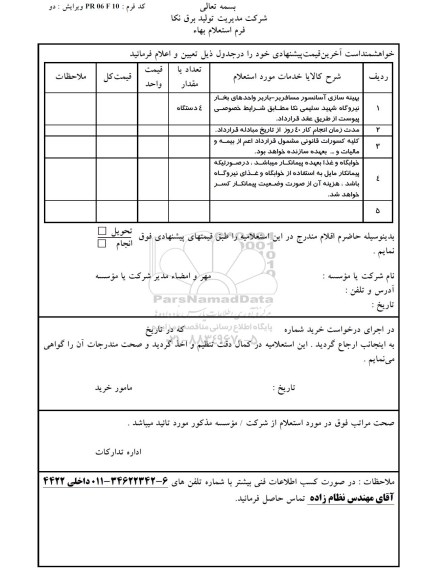 بسمه تعالی
کد فرم : PR 06 F 10 ویرایش : دو
شرکت مدیریت تولید برق نکا
فرم استعلام بهاء
خواهشمنداست آخرین قیمت پیشنهادی خود را درجدول ذیل تعیین و اعلام فرمائید
ردیف
شرح کالایا خدمات مورد استعلام
تعداد یا مقدار
قیمت واحد
قیمت کل
ملاحظات
۱
بهینه سازی آسانسور مسافربر-باربر واحدهای بخار
نیروگاه شهید سلیمی نکا مطابق شرایط خصوصی
پیوست از طریق عقد قرارداد.
٤ دستگاه
۲
مدت زمان انجام کار ٤۰ روز از تاریخ مبادله قرارداد.
۳
کلیه کسورات قانونی مشمول قرارداد اعم از بیمه و
مالیات و .. بعهده سازنده خواهد بود.
٤
خوابگاه و غذا بعهده پیمانکار میباشد . درصورتیکه
پیمانکار مایل به استفاده از خوابگاه و غذای نیروگاه
باشد . هزینه آن از صورت وضعیت پیمانکار کسر
خواهد شد.
۵
بدینوسیله حاضرم اقلام مندرج در این استعلامیه را طبق قیمتهای پیشنهادی فوق
تحویل
انجام
نمایم .
نام شرکت یا مؤسسه :
مهر و امضاء مدیر شرکت یا مؤسسه
آدرس و تلفن :
تاریخ :
ParsNamadData
پایگاه اطلاع رسانی مناقصه
۰۲۱-۸۸۳۴۹۶۷۰-۵
در اجرای درخواست خرید شماره
که در تاریخ
به اینجانب ارجاع گردید . این استعلامیه در کمال دقت تنظیم و اخذ گردید و صحت مندرجات آن را گواهی
می‌نمایم .
تاریخ :
مامور خرید
صحت مراتب فوق در مورد استعلام از شرکت / مؤسسه مذکور مورد تائید میباشد .
اداره تدارکات
ملاحظات : در صورت کسب اطلاعات فنی بیشتر با شماره تلفن های ۶-۳۴۶۲۲۳۴۲-۰۱۱ داخلی ۴۴۲۲
آقای مهندس نظام زاده تماس حاصل فرمائید.